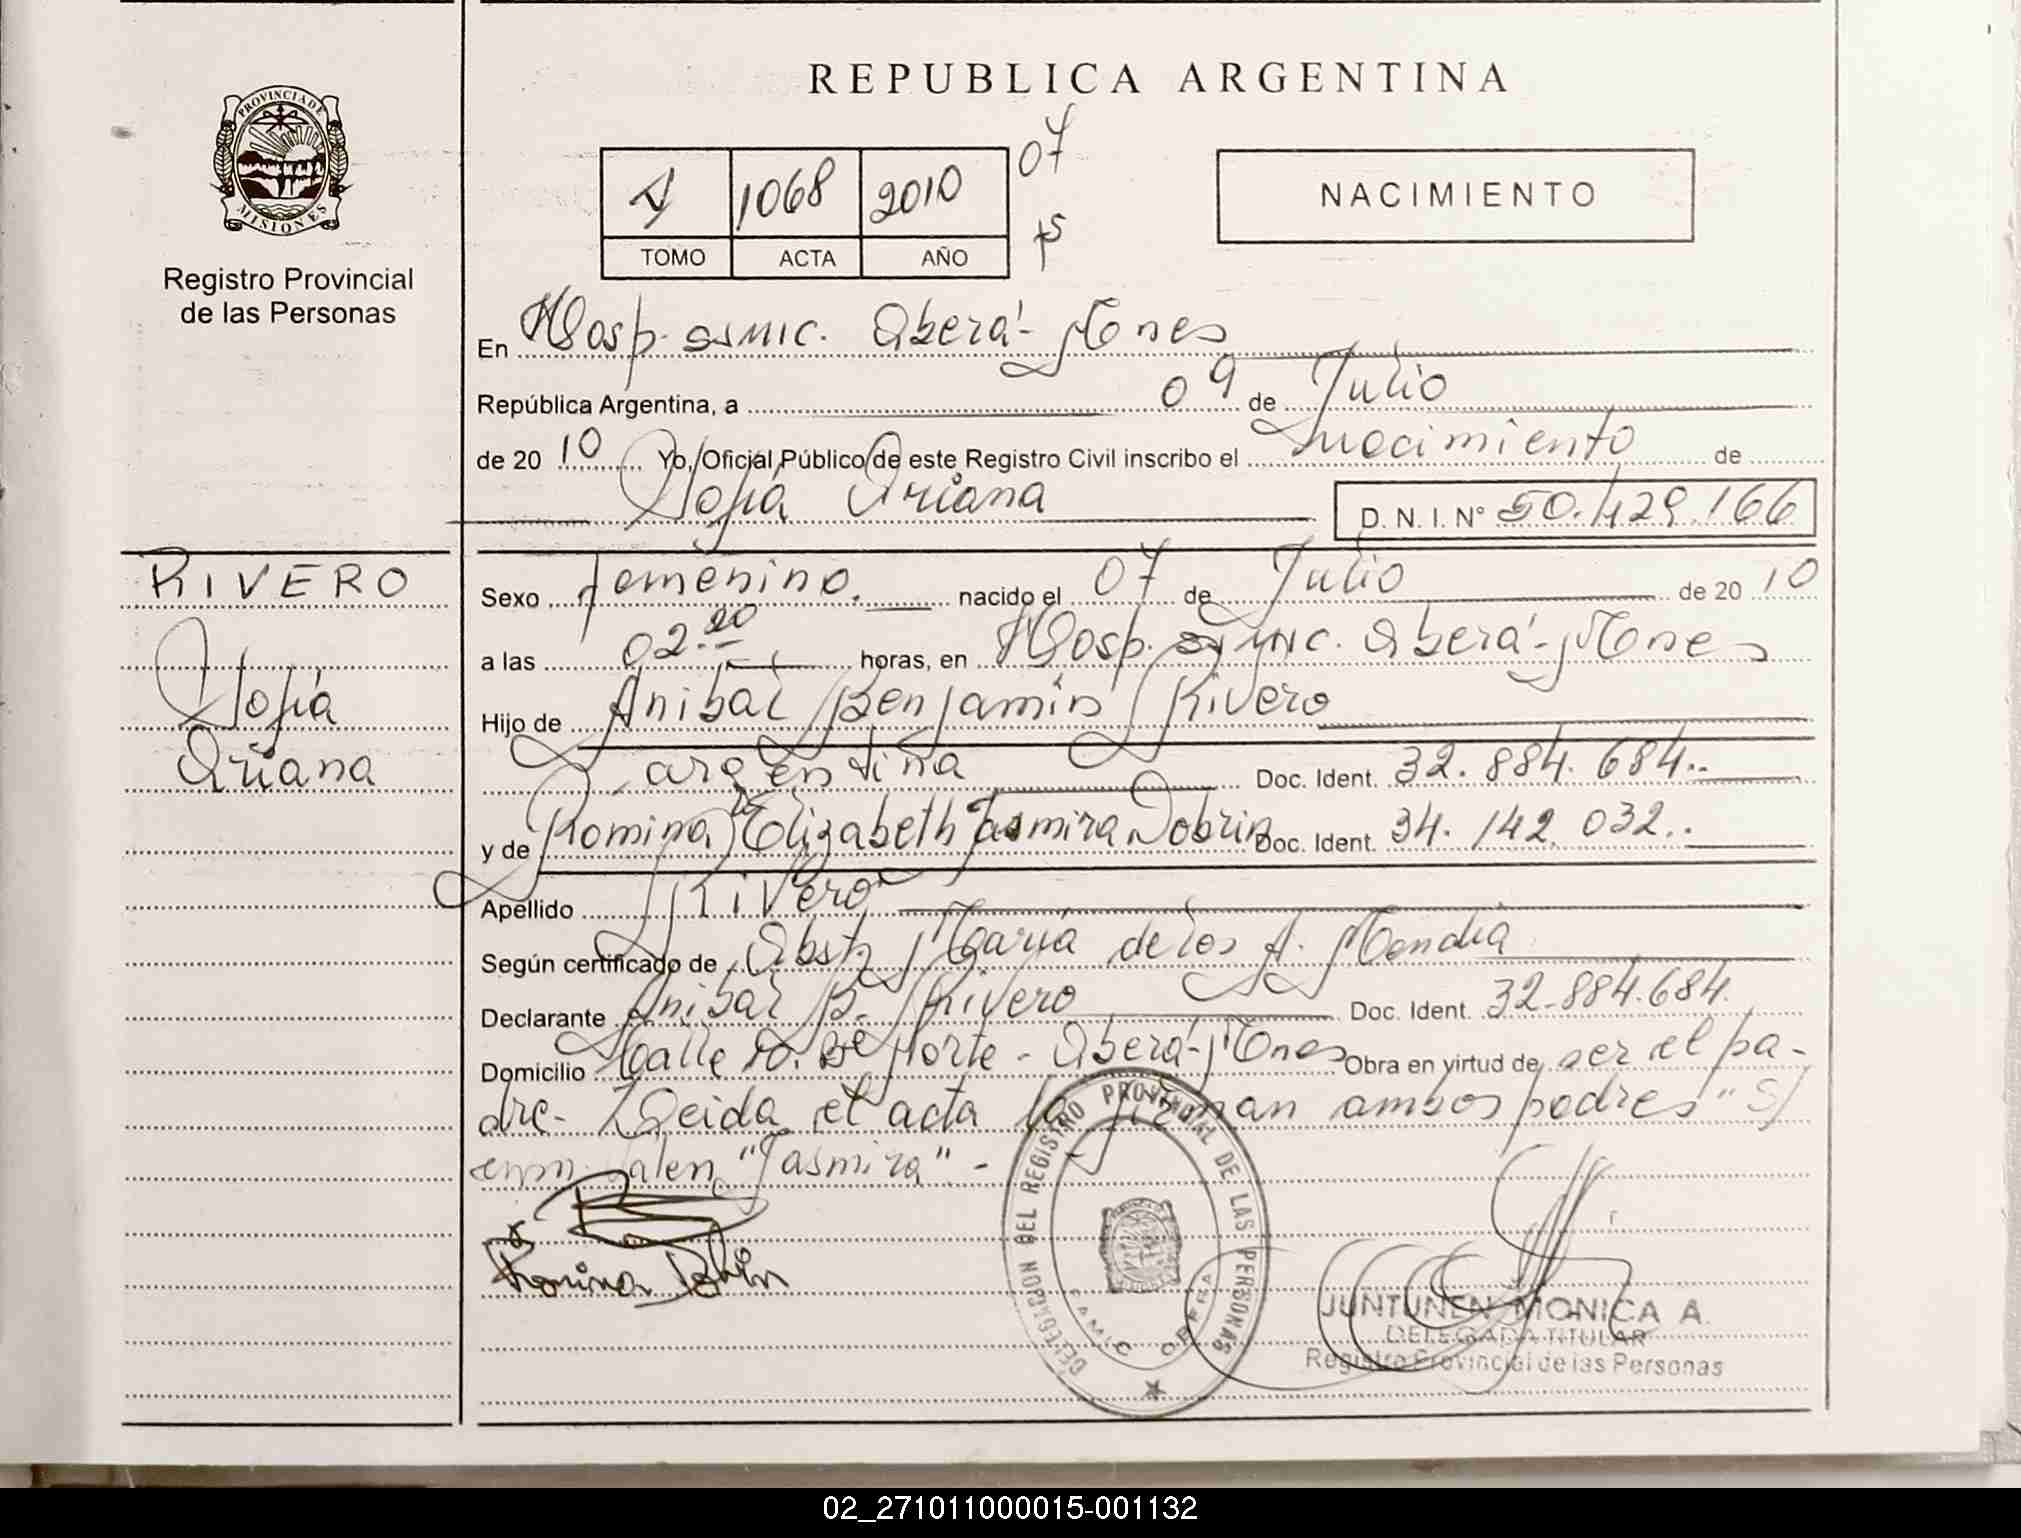 REPUBLICA ARGENTINA
PROVINCIA DE
MISIONES
Registro Provincial
de las Personas
1068 2010 07
TOMO ACTA AÑO
NACIMIENTO
En Hosp. SAMIC. Oberá-Mnes
República Argentina, a 09 de Julio
de 2010 Yo, Oficial Público de este Registro Civil inscribo el nacimiento de
Sofía Oriana D. N. I. N° 50.429.166
RIVERO
Sofía
Oriana
Sexo femenino. nacido el 07 de Julio de 2010
a las 02.20 horas, en Hosp. SAMIC. Oberá-Mnes
Hijo de Anibal Benjamín Rivero
argentina Doc. Ident. 32.884.684..
y de Romina Elizabeth Jasmira Dobrin Doc. Ident. 34.142.032..
Apellido Rivero
Según certificado de Obst. María de los A.
Declarante Anibal B. Rivero Doc. Ident. 32.884.684.
Domicilio Calle Norte - Oberá-Mnes Obra en virtud de ser el pa-
dre- Leida el acta la firman ambos padres "S/
enm. valen "Jasmira" -
Romina Dobrin
DELEGACION DEL REGISTRO PROVINCIAL DE LAS PERSONAS
SAMIC OBERA
JUNTUNEN MONICA A.
DELEGADA TITULAR
Registro Provincial de las Personas
02_271011000015-001132